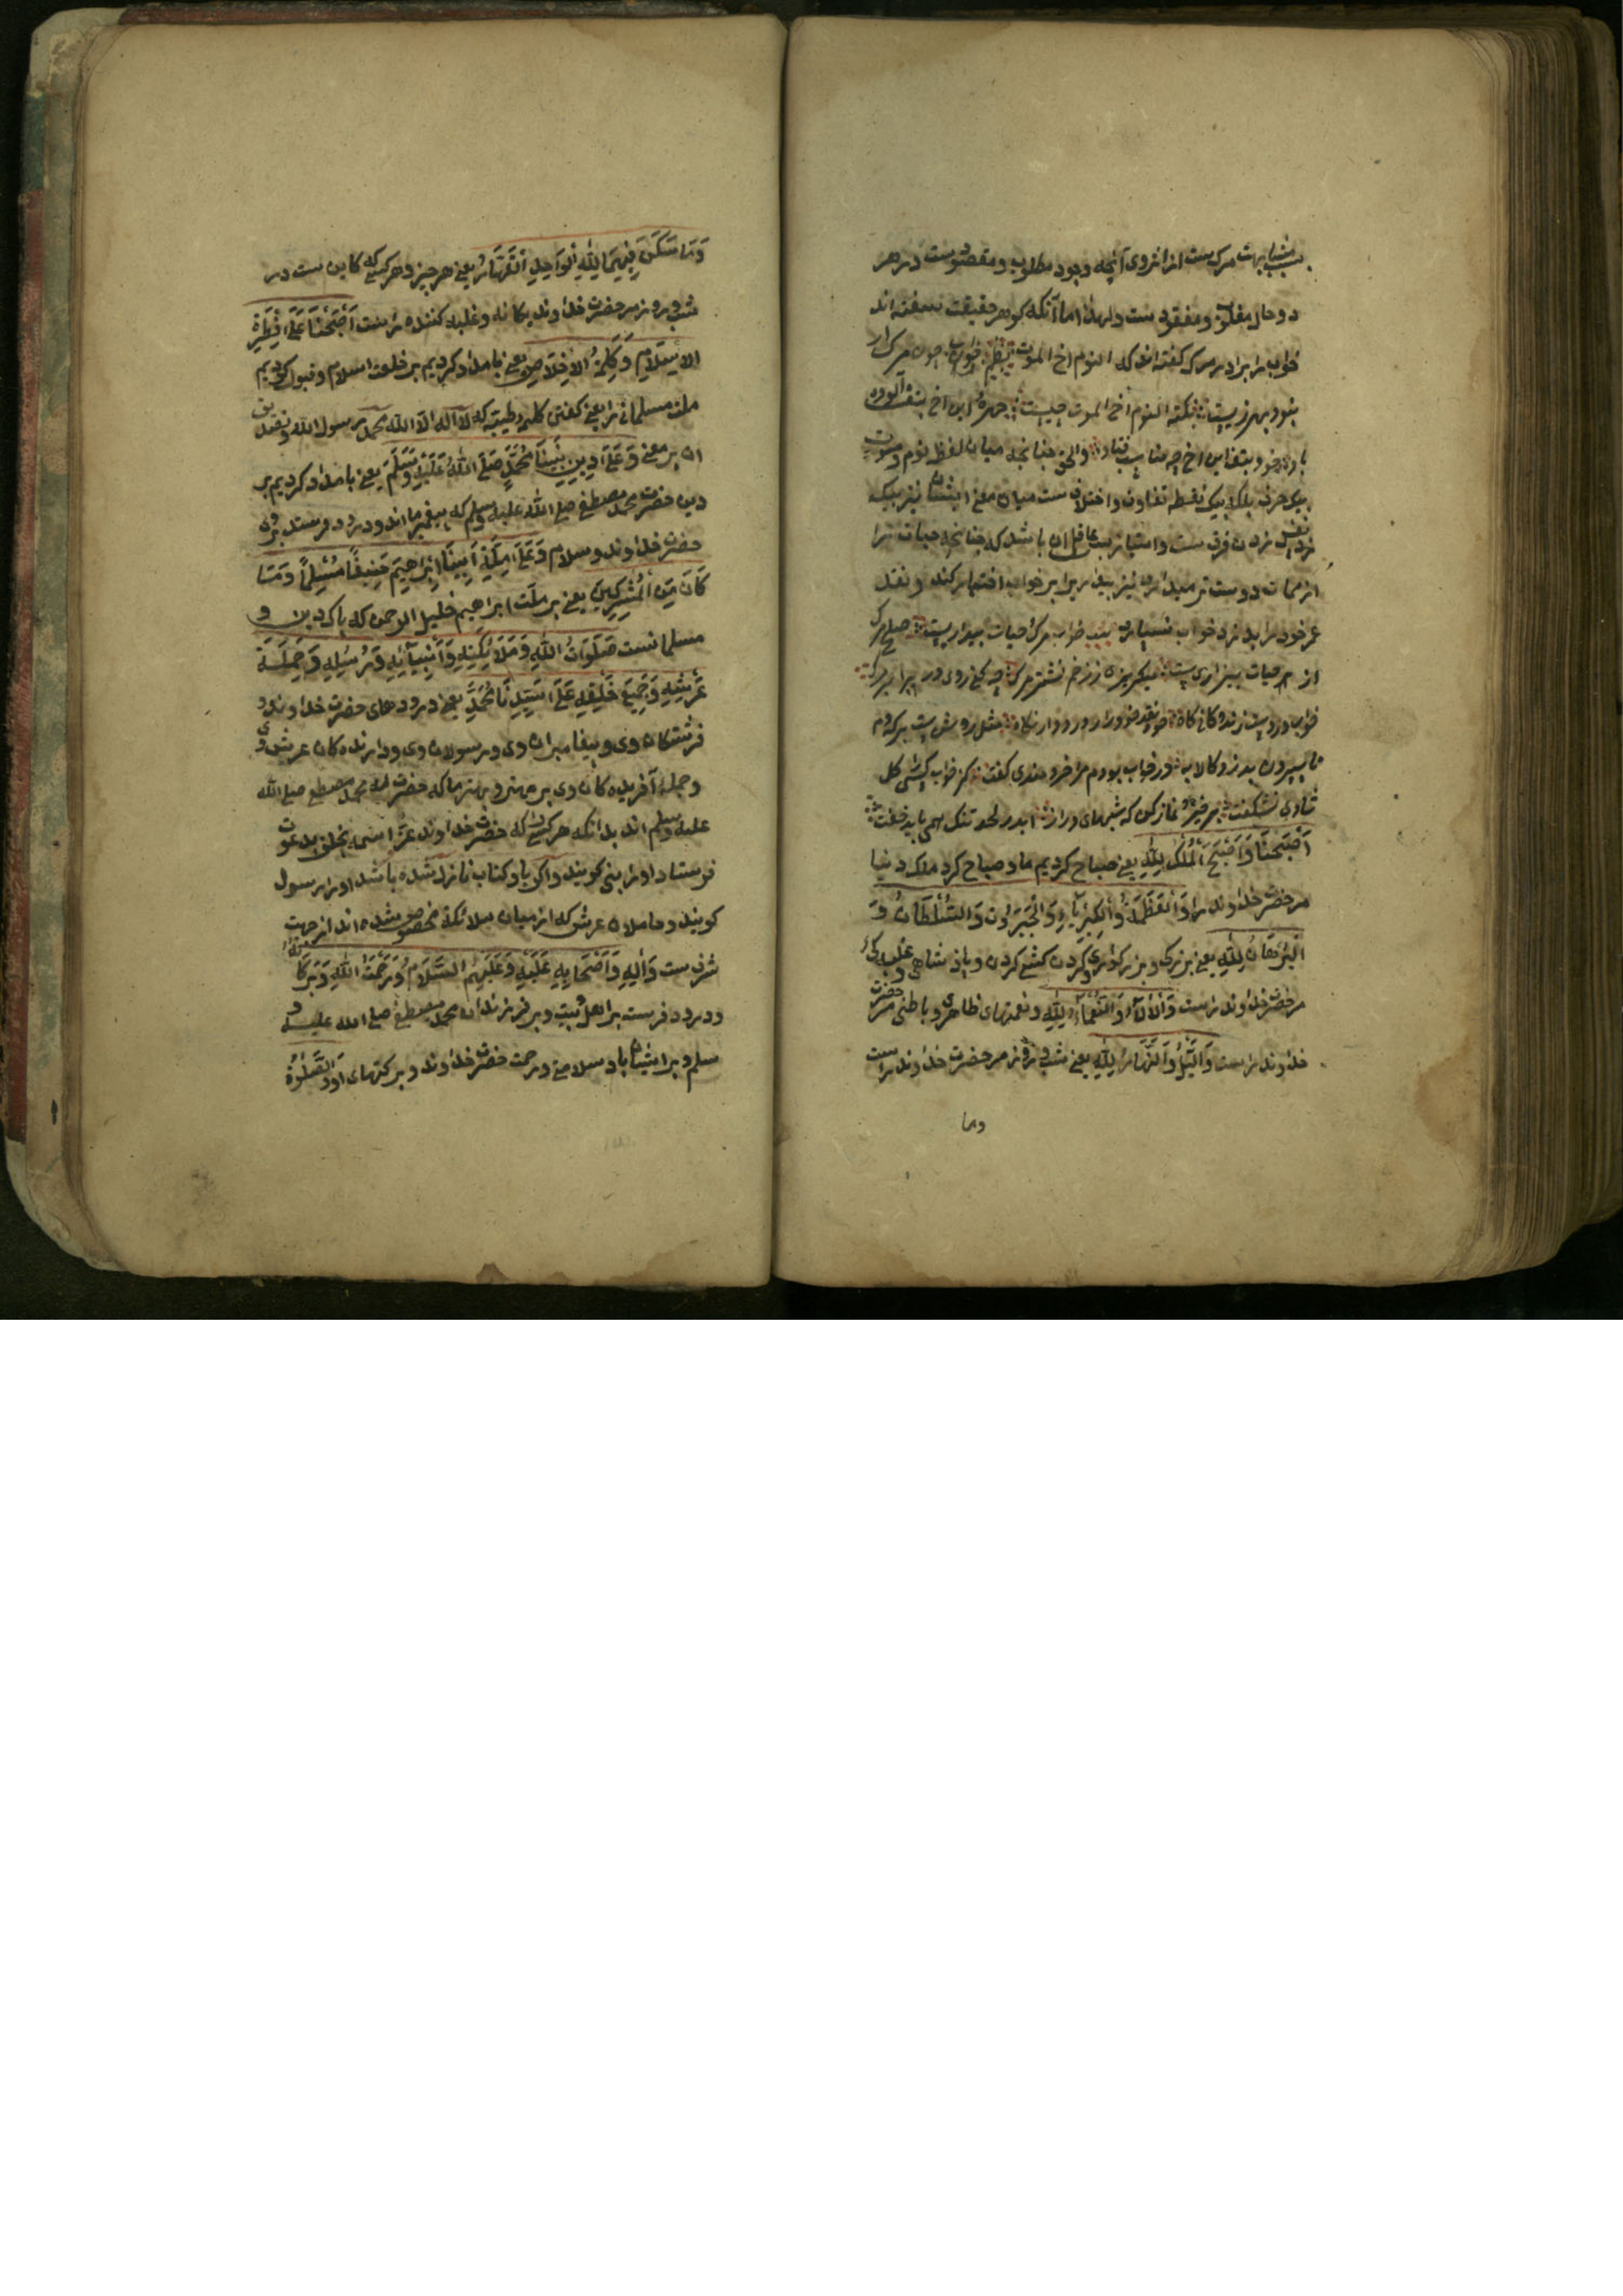 بمشابهت مرگ ست از انروی آنچه وجود مطلوب و مقصود ست در هر
دو حال مغلوب و مفقود ست ولهذا اما آنکه گوهر حقیقت سفته اند
خواب را برادر مرگ گفته اند که النوم اخ الموت نظم خواب چون مرگ ار
بنود بهر زیست نکته النوم اخ الموت چیست چهرهٔ این اخ بتف آلوده
باد خود بتف این اخ چه مناسب فتاد والحق چنانچه میان لفظ نوم و موت
بیک حرف بلکه بیک نقطه تفاوت و اختلاف ست میان معنی ایشان نیز بیک
نفس زدن فرق ست و امتیاز پس عاقل آن باشد که چنانچه حیات را
از ممات دوست تر میدارد نیز بیدار برابر خواب اختیار کند و نقد
عمر خود را بدزد خواب نسپارد بیت خواب مرگ حیات بیداریست صلح مرگ
از حیات بیزاریست میگریزه ز زخم نشتر مرگ چه کنی روی در برابر مرگ
خواب دزدیست زنده کانی کاه خود نقد خود را ز دزد دار نگاه مثل روشن ست بر مردم
نا سپردن بدزد کالا به در خواب بودم مرا خردمندی گفت کز خواب کسی را گل
شادی نشکفت برخیز نماز کن که شبهای دراز اندر لحد تنگ همی باید خفت
اَصْبَحْنَا وَاَصْبَحَ الْمُلْكُ لِلّٰهِ یعنی صباح کردیم ما و صباح کرد ملک دنیا
مر حضرت خداوند را وَالْعَظَمَةُ وَالْكِبْرِيَاءُ وَالْجَبَرُوتُ وَالسُّلْطَانُ وَ
الْبُرْهَانُ لِلّٰهِ یعنی بزرگی و بزرگواری و گردن کشی کردن و پادشاهی و غلبه
مر حضرت خداوند راست وَالْآلَاءُ وَالنَّعْمَاءُ لِلّٰهِ و نعمتهای ظاهری و باطنی مر حضرت
خداوند راست وَاللَّيْلُ وَالنَّهَارُ لِلّٰهِ یعنی شب و روز مر حضرت خداوند راست
وما
وَمَا سَكَنَ فِيهِمَا لِلّٰهِ الْوَاحِدِ الْقَهَّارُ یعنی هر چیز و هر کسی که کاین ست در
شب و روز مر حضرت خداوند یگانه و غلبه کننده راست اَصْبَحْنَا عَلٰی فِطْرَةِ
الْاِسْلَامِ وَكَلِمَةِ الْاِخْلَاصِ یعنی بامداد کردیم بر خلعت اسلام و قبول کردیم
ملت مسلمانی را یعنی گفتن کلمهٔ طیبه که لا اله الا الله محمد رسول الله و تصدیق
ان بر معنی وَعَلٰی دِينِ نَبِيِّنَا مُحَمَّدٍ صَلَّی اللّٰهُ عَلَيْهِ وَسَلَّمَ یعنی بامداد کردیم بر
دین حضرت محمد مصطفی صلی الله علیه وسلم که پیغمبر ما اند و درود فرستد بر وی
حضرت خداوند و سلام وَعَلٰی مِلَّةِ اَبِينَا اِبْرَاهِيمَ حَنِيفًا مُسْلِمًا وَمَا
كَانَ مِنَ الْمُشْرِكِينَ یعنی بر ملت ابراهیم خلیل الرحمن که پاک دین و
مسلمانست صَلَوَاتُ اللّٰهِ وَمَلَائِكَتِهِ وَاَنْبِيَائِهِ وَرُسُلِهِ وَحَمَلَةِ
عَرْشِهِ وَجَمِيعِ خَلْقِهِ عَلٰی سَيِّدِنَا مُحَمَّدٍ یعنی درودهای حضرت خداوند و
فرشتگان وی و پیغامبران وی و رسولان وی و دارنده کان عرش وی
و جملهٔ آفریده کان وی بر مهتر و بهتر ما که حضرت محمد مصطفی صلی الله
علیه وسلم اند بدانکه هر کسی که حضرت خداوند عز اسمه بخلق بدعوت
فرستاد او را نبی گویند و اگر باو کتاب نازل شده باشد او را رسول
گویند و حاملان عرش که از میان ملائکه مخصوص شده اند از جهت
شرف ست وَاٰلِهِ وَاَصْحَابِهِ عَلَيْهِ وَعَلَيْهِمُ السَّلَامُ وَرَحْمَةُ اللّٰهِ وَبَرَكَاتُهُ
و درود فرست بر اهل بیت و بر فرزندان محمد مصطفی صلی الله علیه و
سلم و بر ایشان باد سلامتی و رحمت حضرت خداوند و برکتهای او وَالصَّلٰوةُ